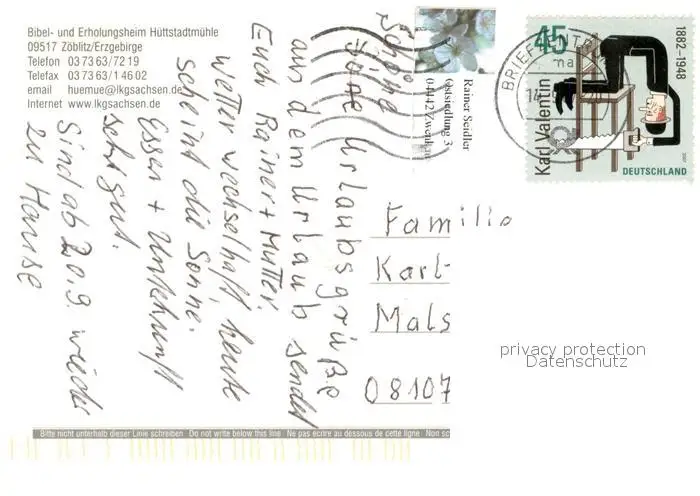 Bibel- und Erholungsheim Hüttstadtmühle
09517 Zöblitz/Erzgebirge
Telefon 03 73 63/72 19
Telefax 03 73 63/1 46 02
email huemue@lkgsachsen.de
Internet www.lkgsachsen.de
Schöne
Urlaubsgrüße
aus dem Urlaub sendet
Euch Rainer + Mutter.
Wetter wechselhaft heute
scheint die Sonne.
Essen + Unterkunft
sehr gut.
Sind ab 20.9. wieder
zu Hause
Rainer Seidler
Ostsiedlung 3
04442 Zwenkau
BRIEFZENTRUM
45
Karl Valentin
1882–1948
2007
DEUTSCHLAND
Familie
Karl-
Mals
08107
privacy protection
Datenschutz
Bitte nicht unterhalb dieser Linie schreiben Do not write below this line Ne pas écrire au dessous de cette ligne Non sc